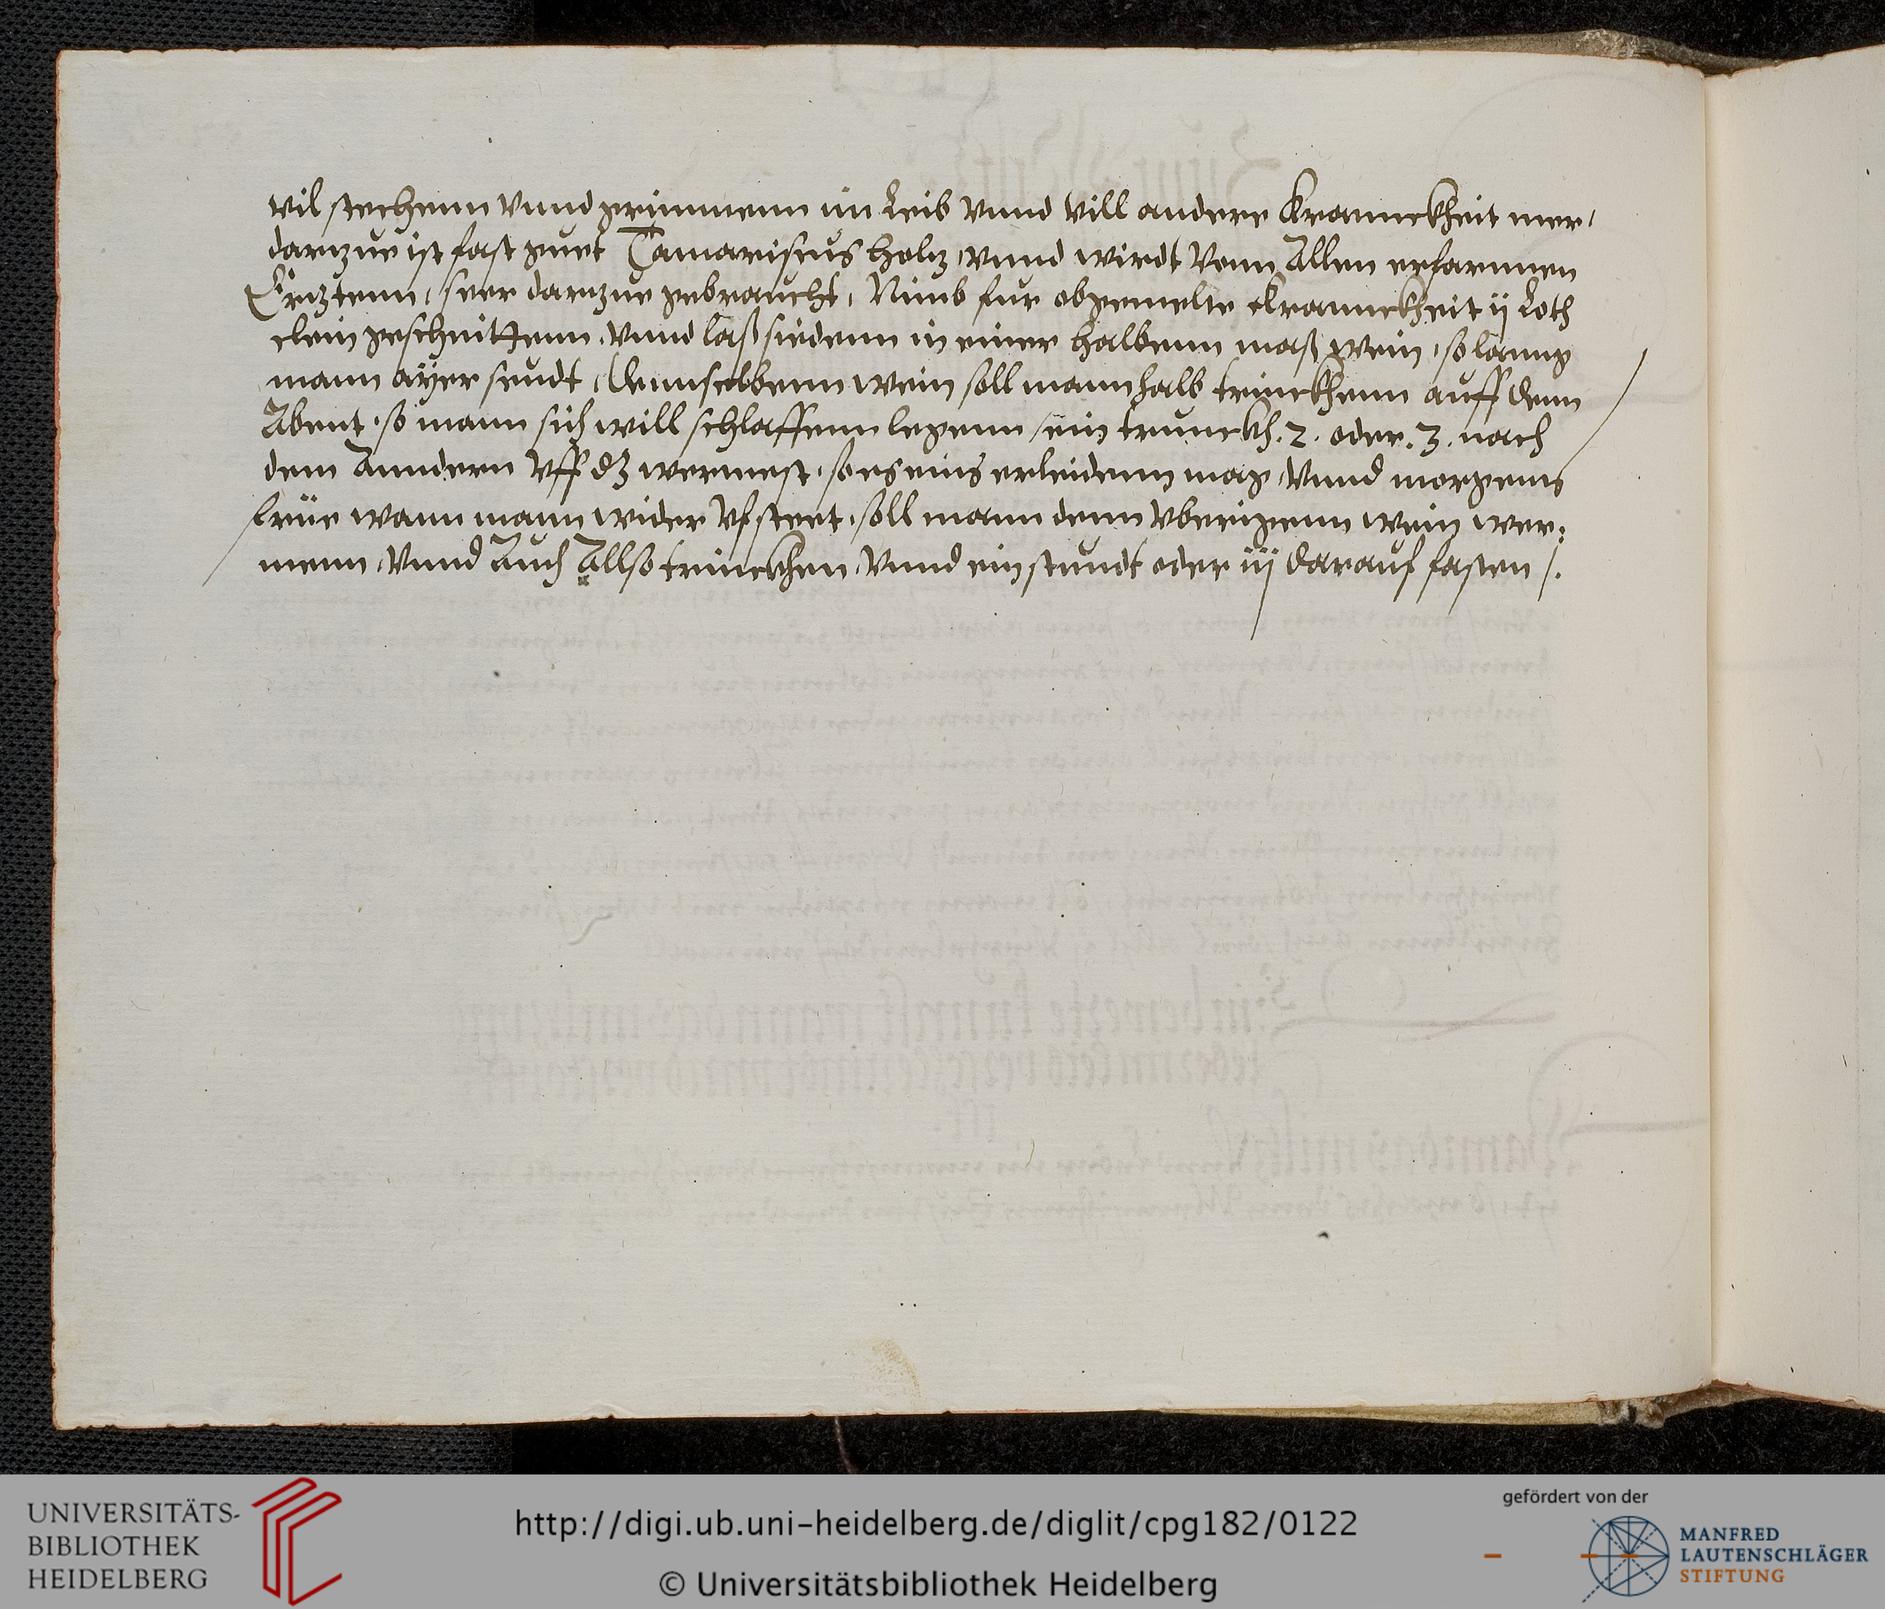 vil stechenn vnnd grimmenn im Leib vnnd vill andere Krannckheit mer,
darzue ist fast guet Tamariscus holtz, vnnd wirdt vonn Allen erfarnnen
Ertztenn, seer darzue gebraucht, Nimb fur obgemelte Kranckheit ij Loth
clein geschnittenn, vnnd laß siedenn in einer halbenn maß wein, so lanng
mann ayer seudt, Dennselbbenn wein soll mann halb trinckhenn auff denn
Abent, so mann sich will schlaffenn legenn, ein trunckh .2. oder .3. nach
dem Anndern vff dz wermest, so es eins erleidenn mag, Vnnd morgenns
früe wann mann wider vfsteet, soll mann denn vberigenn wein wer:
menn, Vnnd Auch Allso trinckhen, Vnnd ein stundt oder iij darauf fasten /.
UNIVERSITÄTS-
BIBLIOTHEK
HEIDELBERG
http://digi.ub.uni-heidelberg.de/diglit/cpg182/0122
© Universitätsbibliothek Heidelberg
gefördert von der
MANFRED
LAUTENSCHLÄGER
STIFTUNG